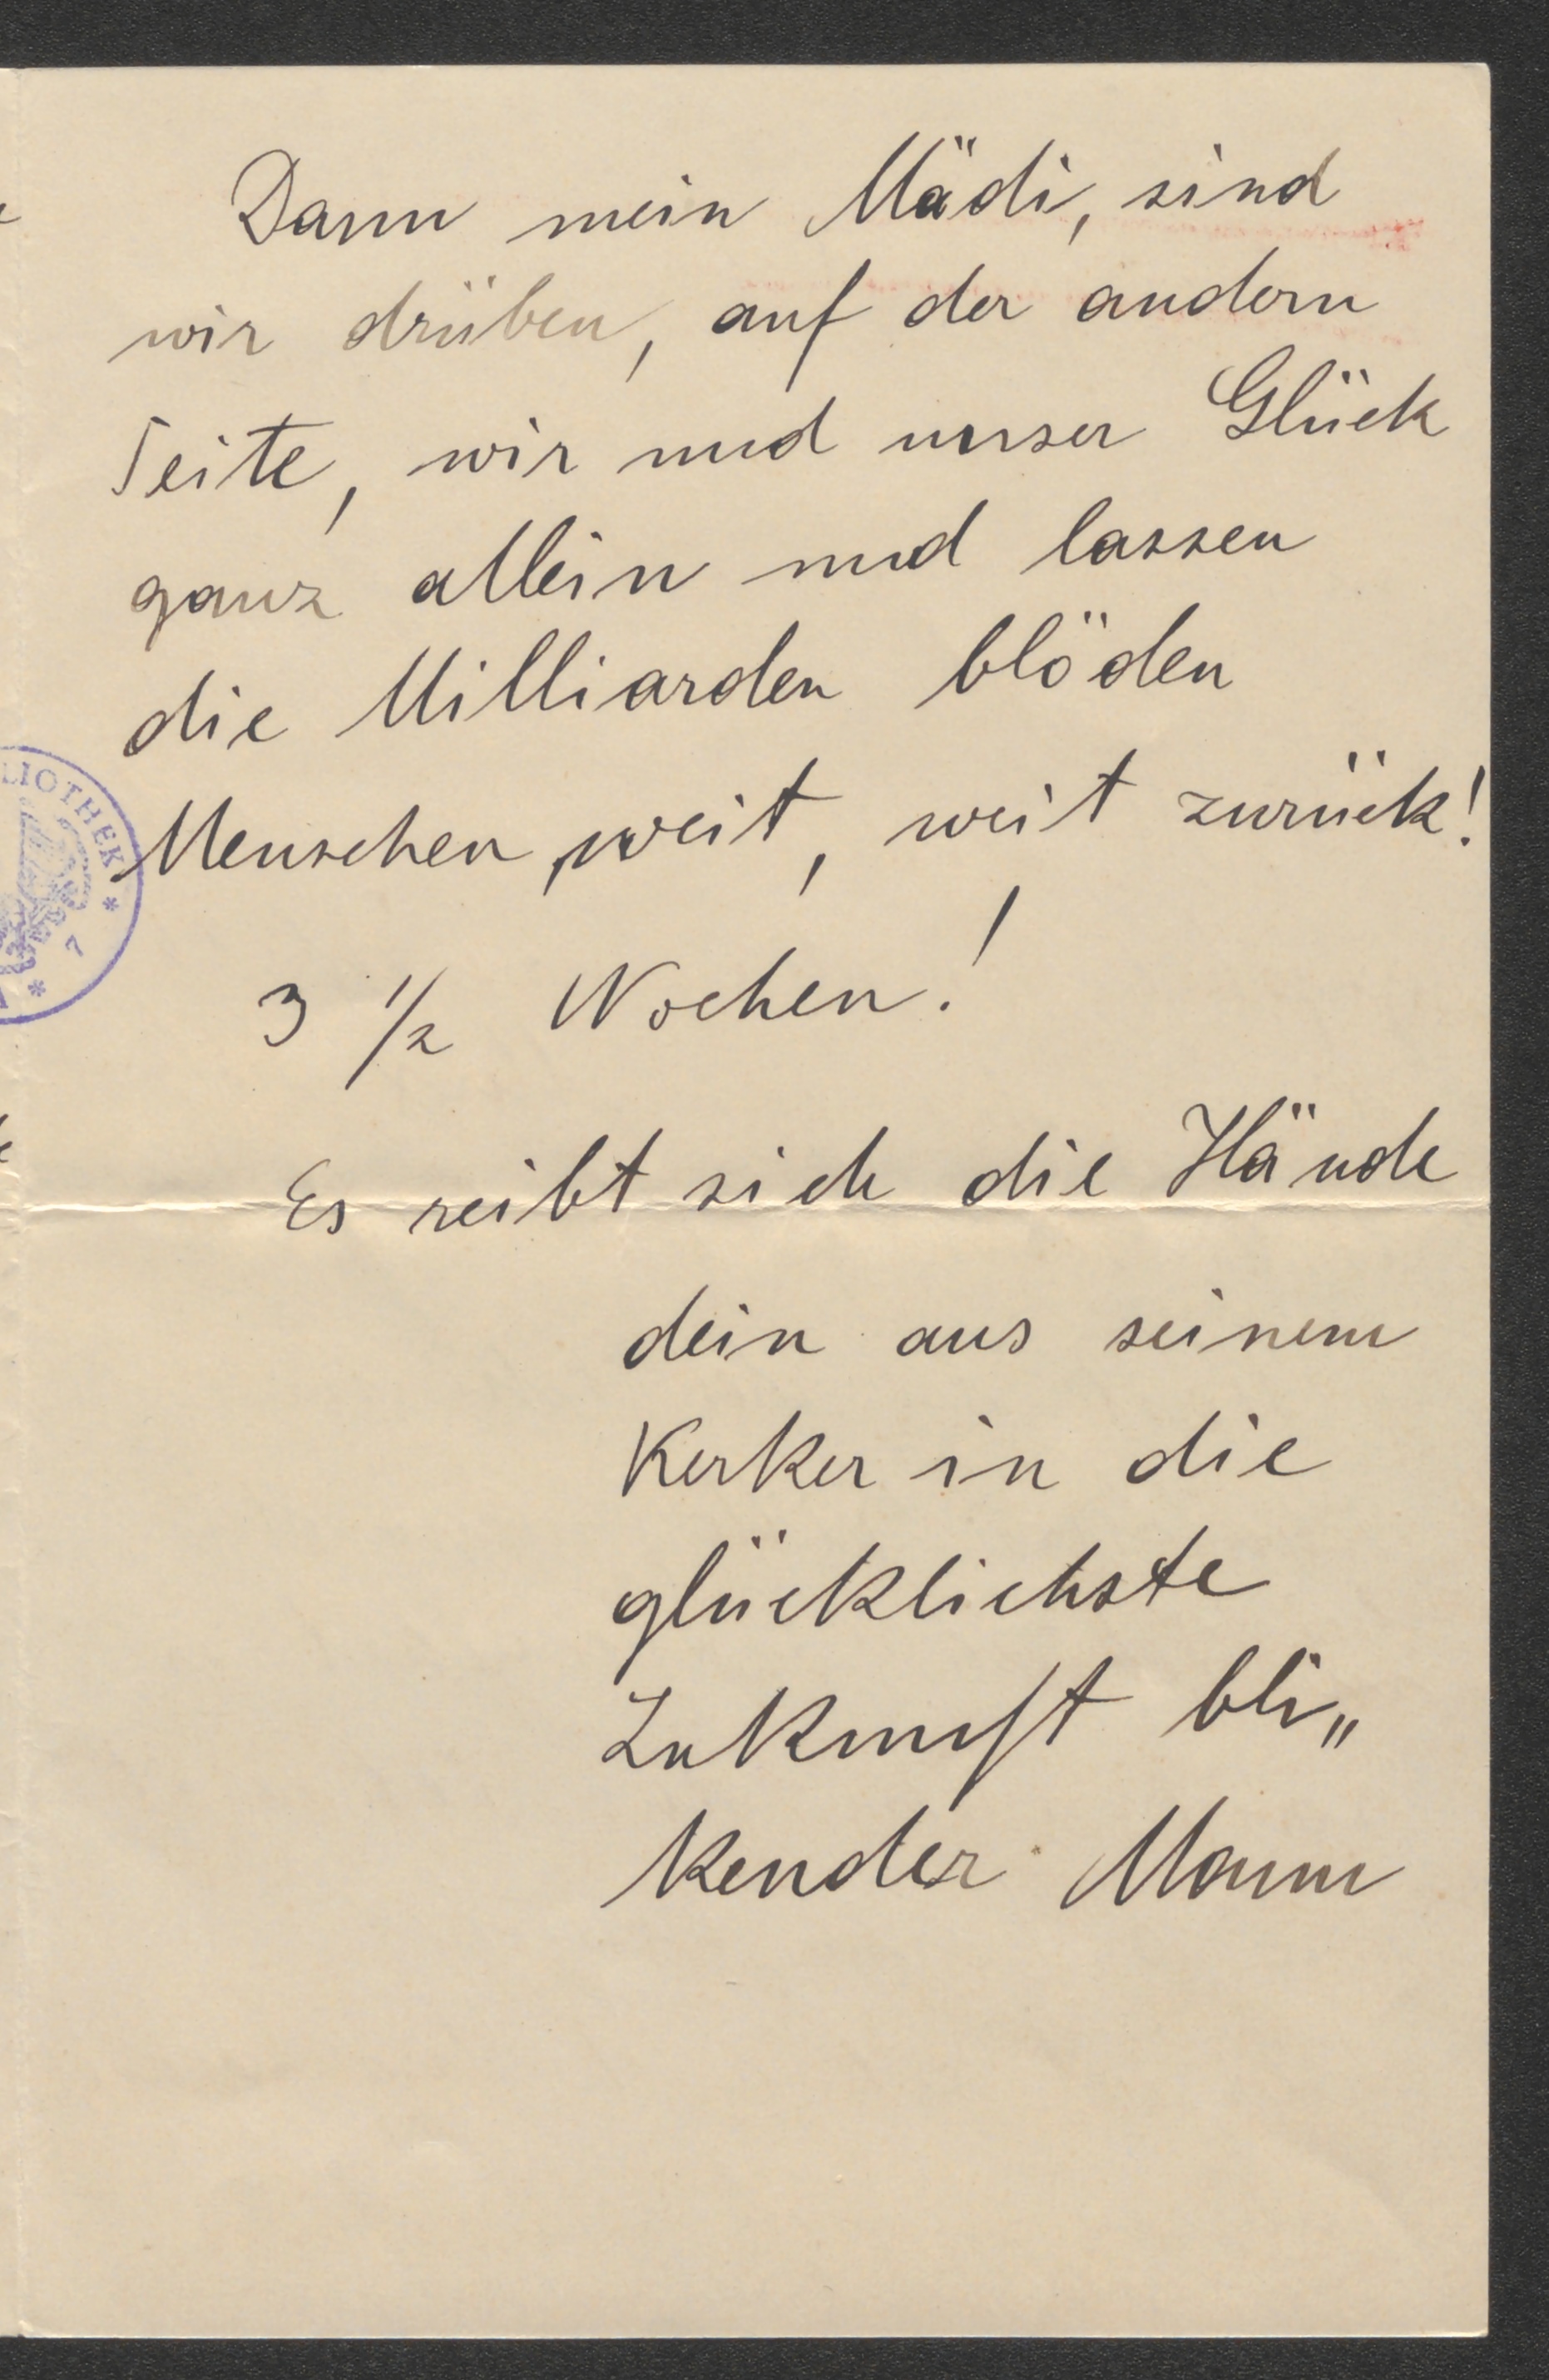 Dann mein Mädi, sind
wir drüben, auf der andern
Seite, wir und unser Glück
ganz allein und lassen
die Milliarden blöden
Menschen, weit, weit zurück!
LIOTHEK * 7 *
3 1/2 Wochen!
Es reibt sich die Hände
dein aus seinem
Kerker in die
glücklichste
Zukunft bli„
kender Mann